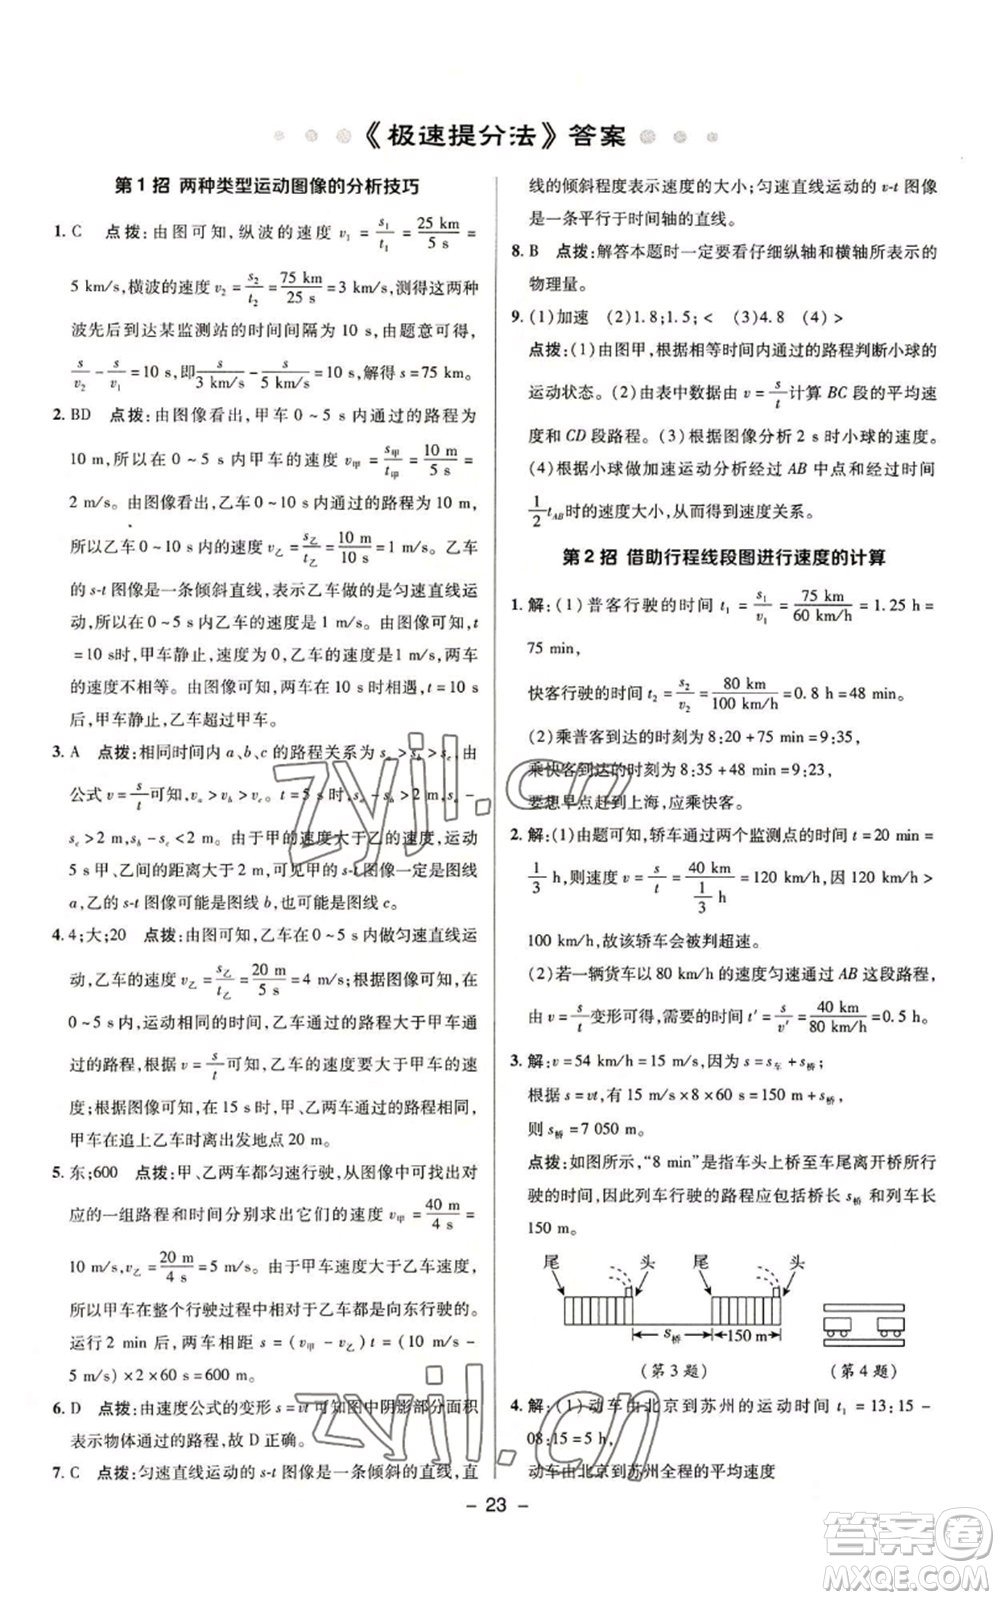 《极速提分法》答案
第 1 招 两种类型运动图像的分析技巧
1. C 点拨:由图可知,纵波的速度 v₁ = s₁/t₁ = 25 km/5 s =
5 km/s,横波的速度 v₂ = s₂/t₂ = 75 km/25 s = 3 km/s,测得这两种
波先后到达某监测站的时间间隔为 10 s,由题意可得,
s/v₂ − s/v₁ = 10 s,即 s/3 km/s − s/5 km/s = 10 s,解得 s = 75 km。
2. BD 点拨:由图像看出,甲车 0 ~ 5 s 内通过的路程为
10 m,所以在 0 ~ 5 s 内甲车的速度 v甲 = s甲/t甲 = 10 m/5 s =
2 m/s。由图像看出,乙车 0 ~ 10 s 内通过的路程为 10 m,
所以乙车 0 ~ 10 s 内的速度 v乙 = s乙/t乙 = 10 m/10 s = 1 m/s。乙车
的 s-t 图像是一条倾斜直线,表示乙车做的是匀速直线运
动,所以在 0 ~ 5 s 内,乙车的速度是 1 m/s。由图可知,t
= 10 s时,甲车静止,乙车的速度仍然是 1 m/s,两车
的速度不相等。由图像可知,两车在 5 s 时相遇,t = 5 s
后,甲车静止,乙车超过甲车。
3. A 点拨:相同时间内 a、b、c 的路程关系为 sa > sb > sc,由
公式 v = s/t 可知,va > vb > vc。t = 5 s 时,sa − sb > 2 m,sa −
sc > 2 m,sb − sc < 2 m。由于甲的速度大于乙的速度,运动
5 s 甲、乙间的距离大于 2 m,则甲的 s-t 图像一定是图线
a,乙的 s-t 图像可能是图线 b,也可能是图线 c。
4. 4;大;20 点拨:由图可知,乙车在 5 s 内做匀速直线运
动,乙车的速度 v乙 = s乙/t乙 = 20 m/5 s = 4 m/s;根据图像可知,在
0 ~ 5 s 内,运动相同的时间,乙车通过的路程大于甲车通
过的路程,由 v = s/t 可知,乙车的速度要大于甲车的速
度;根据图像可知,在 15 s 时,甲、乙两车的路程相同,
甲车在追上乙车时离出发地点 20 m。
5. 东;600 点拨:甲、乙两车都匀速行驶,从图像中可找出对
应的一组路程和时间分别求出它们的速度 v甲 = 40 m/4 s =
10 m/s,v乙 = 20 m/4 s = 5 m/s。由于甲车速度大于乙车速度,
所以甲车在整个行驶过程中相对于乙车都是向东行驶的。
运行 2 min 后,两车相距 s = (v甲 − v乙) t = (10 m/s −
5 m/s) × 2 × 60 s = 600 m。
6. D 点拨:由速度公式的变形 s = vt 可知图中阴影部分面积
表示物体通过的路程,故 D 正确。
7. C 点拨:匀速直线运动的 s-t 图像是一条倾斜的直线,直
线的倾斜程度表示速度的大小;匀速直线运动的 v-t 图像
是一条平行于时间轴的直线。
8. B 点拨:解答本题时一定要看仔细纵轴和横轴所表示的
物理量。
9. (1)加速 (2)1.8;1.5;< (3)4.8 (4)>
点拨:(1)由图甲,根据相等时间内通过的路程判断小球的
运动状态。(2)由表中数据由 v = s/t 计算 BC 段的平均速
度和 CD 段路程。(3)根据图像分析 2 s 时小球的速度。
(4)根据小球做加速运动分析经过 AB 中点和经过时间
1/2 tAB时的速度大小,从而得到速度关系。
第 2 招 借助行程线段图进行速度的计算
1. 解:(1)普客行驶的时间 t₁ = s₁/v₁ = 75 km/60 km/h = 1.25 h =
75 min,
快客行驶的时间 t₂ = s₂/v₂ = 80 km/100 km/h = 0.8 h = 48 min。
(2)乘普客到达的时刻为 8:20 + 75 min = 9:35,
乘快客到达的时刻为 8:35 + 48 min = 9:23,
要想早点赶到上海,应乘快客。
2. 解:(1)由题可知,轿车通过两个监测点的时间 t = 20 min =
1/3 h,则速度 v = s/t = 40 km/(1/3 h) = 120 km/h,因为 120 km/h >
100 km/h,故该轿车会被判超速。
(2)若一辆货车以 80 km/h 的速度匀速通过 AB 这段路程,
由 v = s/t 变形可得,需要的时间 t′ = s/v′ = 40 km/80 km/h = 0.5 h。
3. 解:v = 54 km/h = 15 m/s,因为 s = s车 + s桥;
根据 s = vt,所以 15 m/s × 8 × 60 s = 150 m + s桥,
则 s桥 = 7 050 m。
点拨:如图所示,“8 min”是指车头上桥至车尾离开桥所行
驶的时间,因此列车行驶的路程应包括桥长 s桥 和列车长
150 m。
尾 头 尾 头
s桥 150 m
(第 3 题) (第 4 题)
4. 解:(1)动车由北京到苏州的运动时间 t₁ = 13:15 −
08:15 = 5 h,
动车由北京到苏州全程的平均速度
– 23 –
zyjl.cn
zyjl.cn
答案圈
MXQE.COM